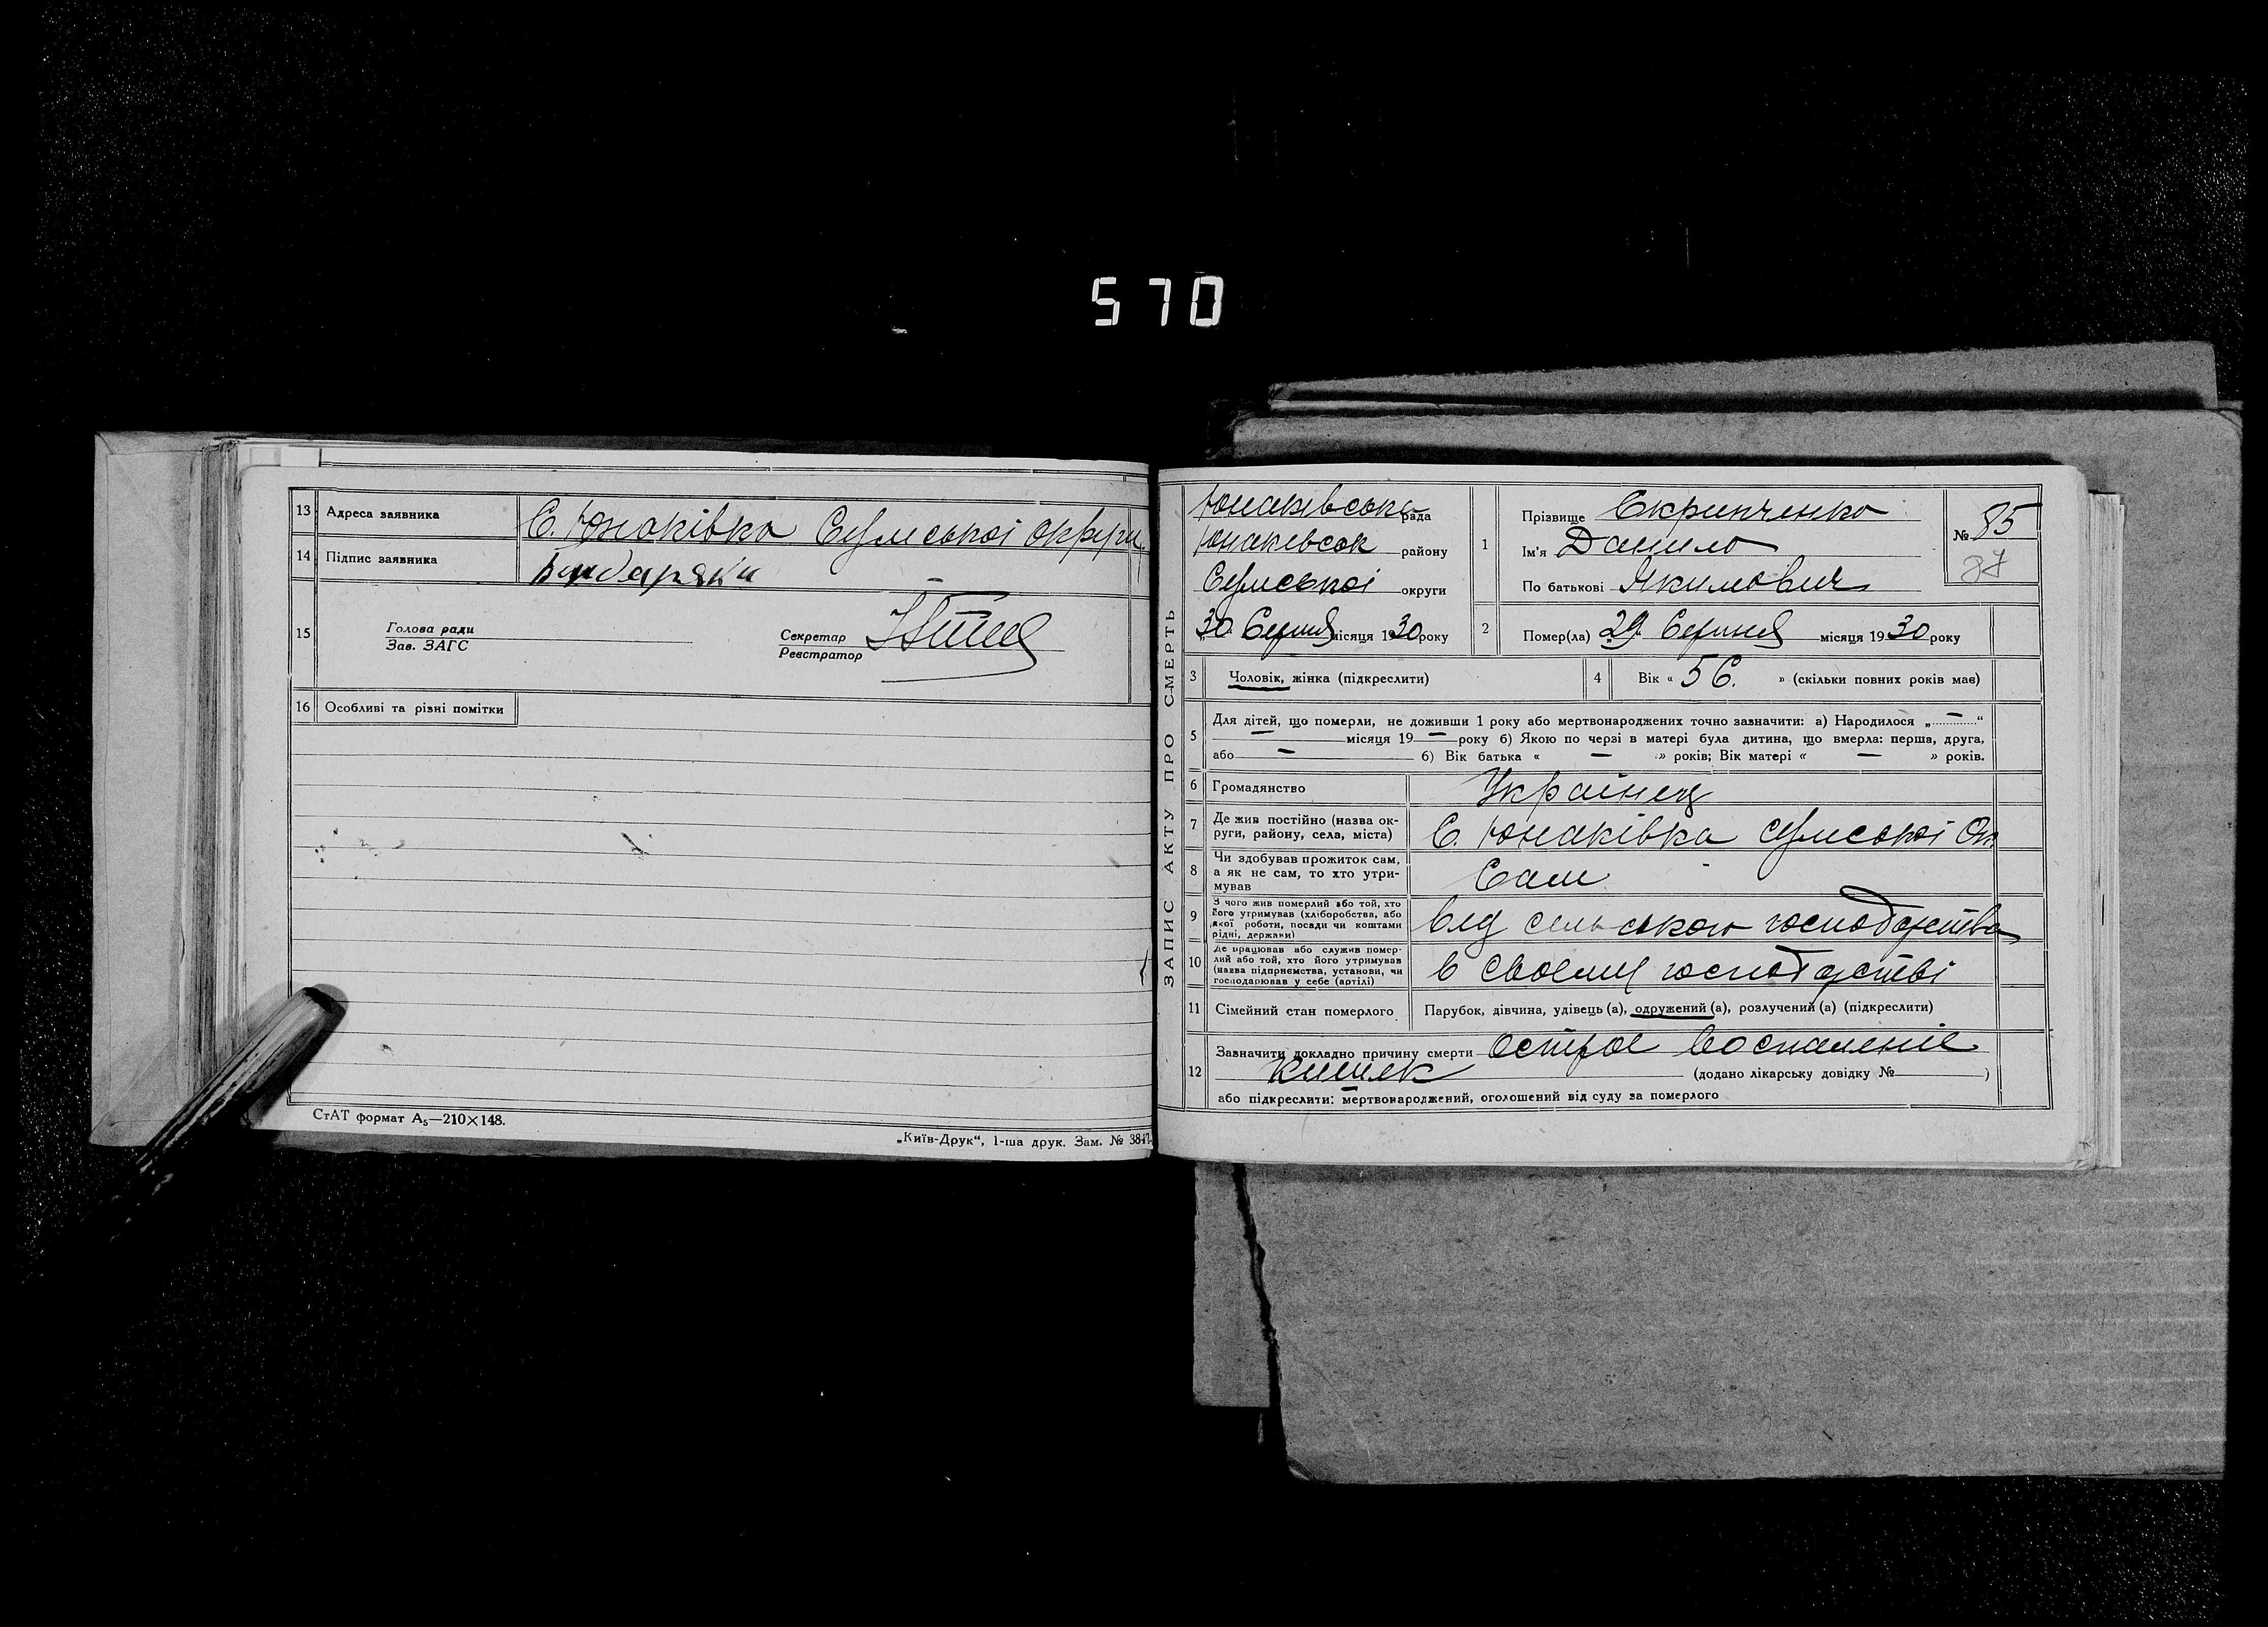 570
13 Адреса заявника С. Юнаківка Сумської округи
14 Підпис заявника
15 Голова ради
Зав. ЗАГС
Секретар
Реєстратор
16 Особливі та різні помітки
СтАТ формат А₅—210×148.
„Київ-Друк“, 1-ша друк. Зам. № 384
ЗАПИС АКТУ ПРО СМЕРТЬ
Юнаківська рада
Юнаківськ району
Сумської округи
„30. Серпня місяця 1930 року
1 Прізвище Скрипченко
Ім'я Данило
По батькові Якимович
№ 85
87
2 Помер(ла) 29. Серпня місяця 1930 року
3 Чоловік, жінка (підкреслити)
4 Вік « 56. » (скільки повних років мав)
5 Для дітей, що померли, не доживши 1 року або мертвонароджених точно зазначити: а) Народилося „ — “
— місяця 19 — року б) Якою по черзі в матері була дитина, що вмерла: перша, друга,
або — б) Вік батька « — » років; Вік матері « — » років.
6 Громадянство Українец
7 Де жив постійно (назва ок-
руги, району, села, міста) С. Юнаківка Сумської Ок.
8 Чи здобував прожиток сам,
а як не сам, то хто утри-
мував Сам
9 З чого жив померлий або той, хто
його утримував (хліборобства, або
якої роботи, посади чи коштами
рідні, держави) Від сельського господарства
10 Де працював або служив помер-
лий або той, хто його утримував
(назва підприємства, установи, чи
господарював у себе (артілі) в своему господарстві
11 Сімейний стан померлого Парубок, дівчина, удівець (а), одружений (а), розлучений (а) (підкреслити)
12 Зазначити докладно причину смерти Острое Воспаленіе
Кишек (додано лікарську довідку № )
або підкреслити: мертвонароджений, оголошений від суду за померлого